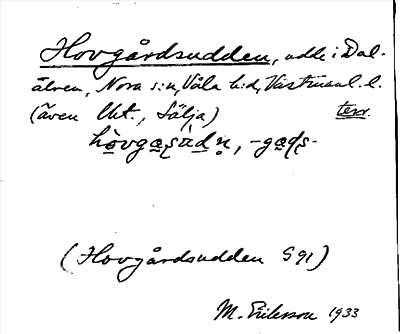 Hovgårdsudden, udde i Dal-
älven, Nora s:n, Våla h:d, Västmanl. l.
(även Ukt., Sälja) terr.
(Hovgårdsudden S 91)
M. Eriksson 1933